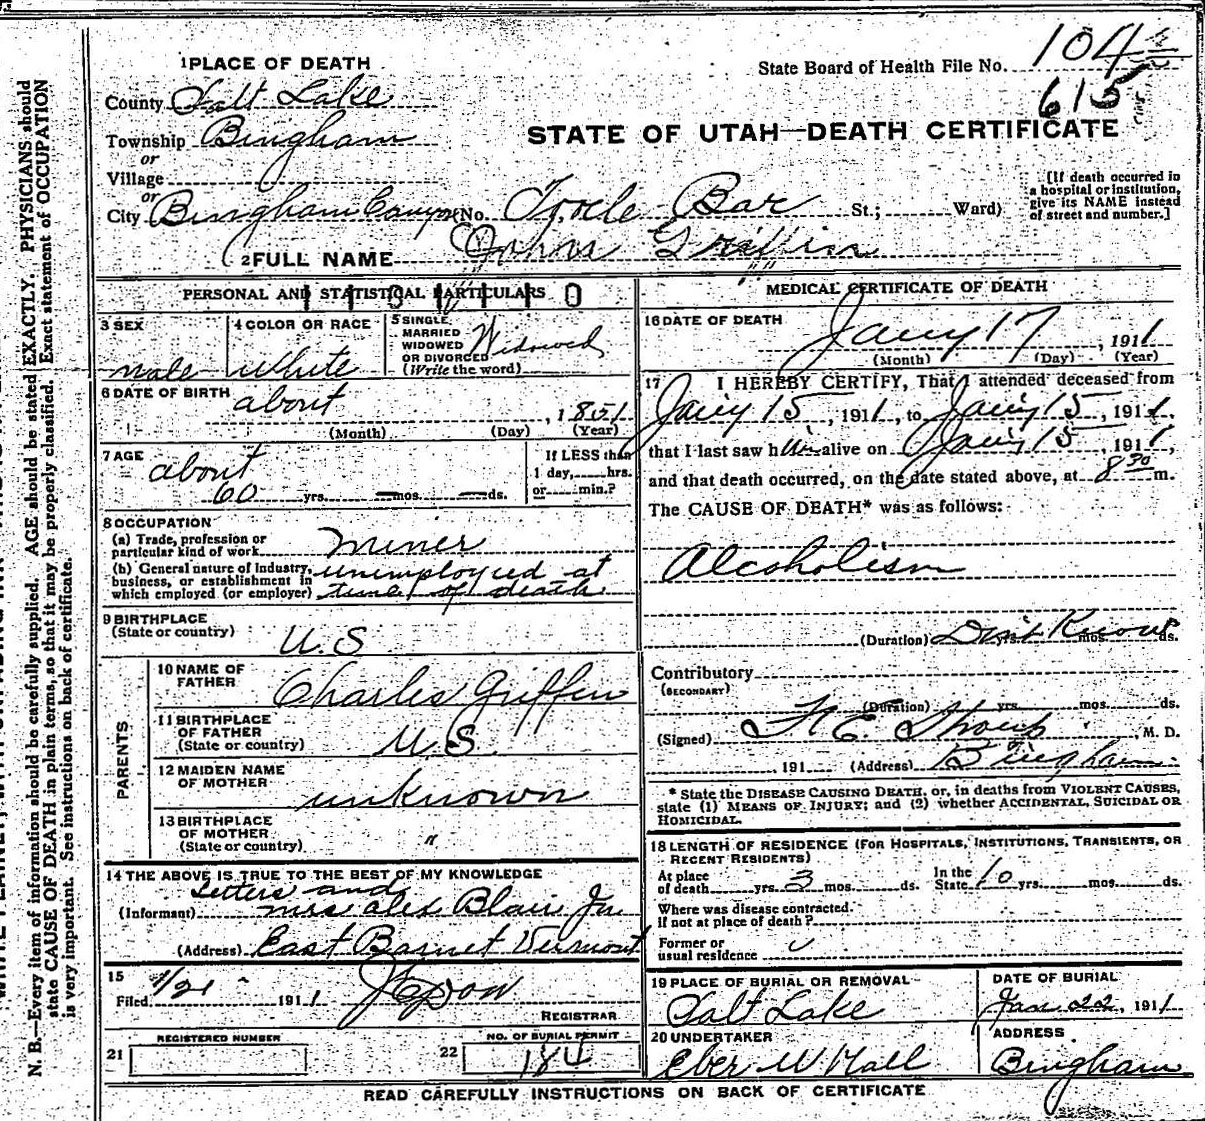 1 PLACE OF DEATH
State Board of Health File No. 104
615
County Salt Lake
Township Bingham
or
Village
or
City Bingham Canyon No. Bar St.; Ward)
STATE OF UTAH—DEATH CERTIFICATE
[If death occurred in
a hospital or institution,
give its NAME instead
of street and number.]
2 FULL NAME John Griffin
PERSONAL AND STATISTICAL PARTICULARS
3 SEX
male
4 COLOR OR RACE
White
5 SINGLE,
MARRIED
WIDOWED
OR DIVORCED
(Write the word)
Widowed
6 DATE OF BIRTH
about , 1851
(Month) (Day) (Year)
7 AGE
about
60 yrs. — mos. — ds.
If LESS than
1 day, hrs.
or min.?
8 OCCUPATION
(a) Trade, profession or
particular kind of work Miner
(b) General nature of Industry,
business, or establishment in
which employed (or employer)
unemployed at
time of death
9 BIRTHPLACE
(State or country)
U.S
PARENTS
10 NAME OF
FATHER
Charles Griffin
11 BIRTHPLACE
OF FATHER
(State or country)
U.S
12 MAIDEN NAME
OF MOTHER
unknown
13 BIRTHPLACE
OF MOTHER
(State or country)
"
14 THE ABOVE IS TRUE TO THE BEST OF MY KNOWLEDGE
Letters and
(Informant) Mrs Alex Blair Jr
(Address) East Barnet Vermont
15
Filed 1/21 1911
REGISTRAR
21
REGISTERED NUMBER
22
NO. OF BURIAL PERMIT
184
MEDICAL CERTIFICATE OF DEATH
16 DATE OF DEATH
Jany 17 , 1911
(Month) (Day) (Year)
17 I HEREBY CERTIFY, That I attended deceased from
Jany 15, 1911, to Jany 15, 1911,
that I last saw him alive on Jany 15, 1911,
and that death occurred, on the date stated above, at 8 30 m.
The CAUSE OF DEATH* was as follows:
Alcoholism
(Duration) Don't Know yrs. mos. ds.
Contributory
(SECONDARY)
(Duration) yrs. mos. ds.
(Signed) F E Straup, M. D.
, 191 (Address) Bingham
* State the DISEASE CAUSING DEATH, or, in deaths from VIOLENT CAUSES,
state (1) MEANS OF INJURY; and (2) whether ACCIDENTAL, SUICIDAL OR
HOMICIDAL.
18 LENGTH OF RESIDENCE (FOR HOSPITALS, INSTITUTIONS, TRANSIENTS, OR
RECENT RESIDENTS)
At place
of death yrs. 3 mos. ds.
In the
State 10 yrs. mos. ds.
Where was disease contracted.
If not at place of death?
Former or
usual residence
19 PLACE OF BURIAL OR REMOVAL
Salt Lake
DATE OF BURIAL
Jan 22, 1911
20 UNDERTAKER
Eber W Hall
ADDRESS
Bingham
READ CAREFULLY INSTRUCTIONS ON BACK OF CERTIFICATE
N. B.—Every item of information should be carefully supplied. AGE should be stated EXACTLY. PHYSICIANS should
state CAUSE OF DEATH in plain terms, so that it may be properly classified. Exact statement of OCCUPATION
is very important. See instructions on back of certificate.